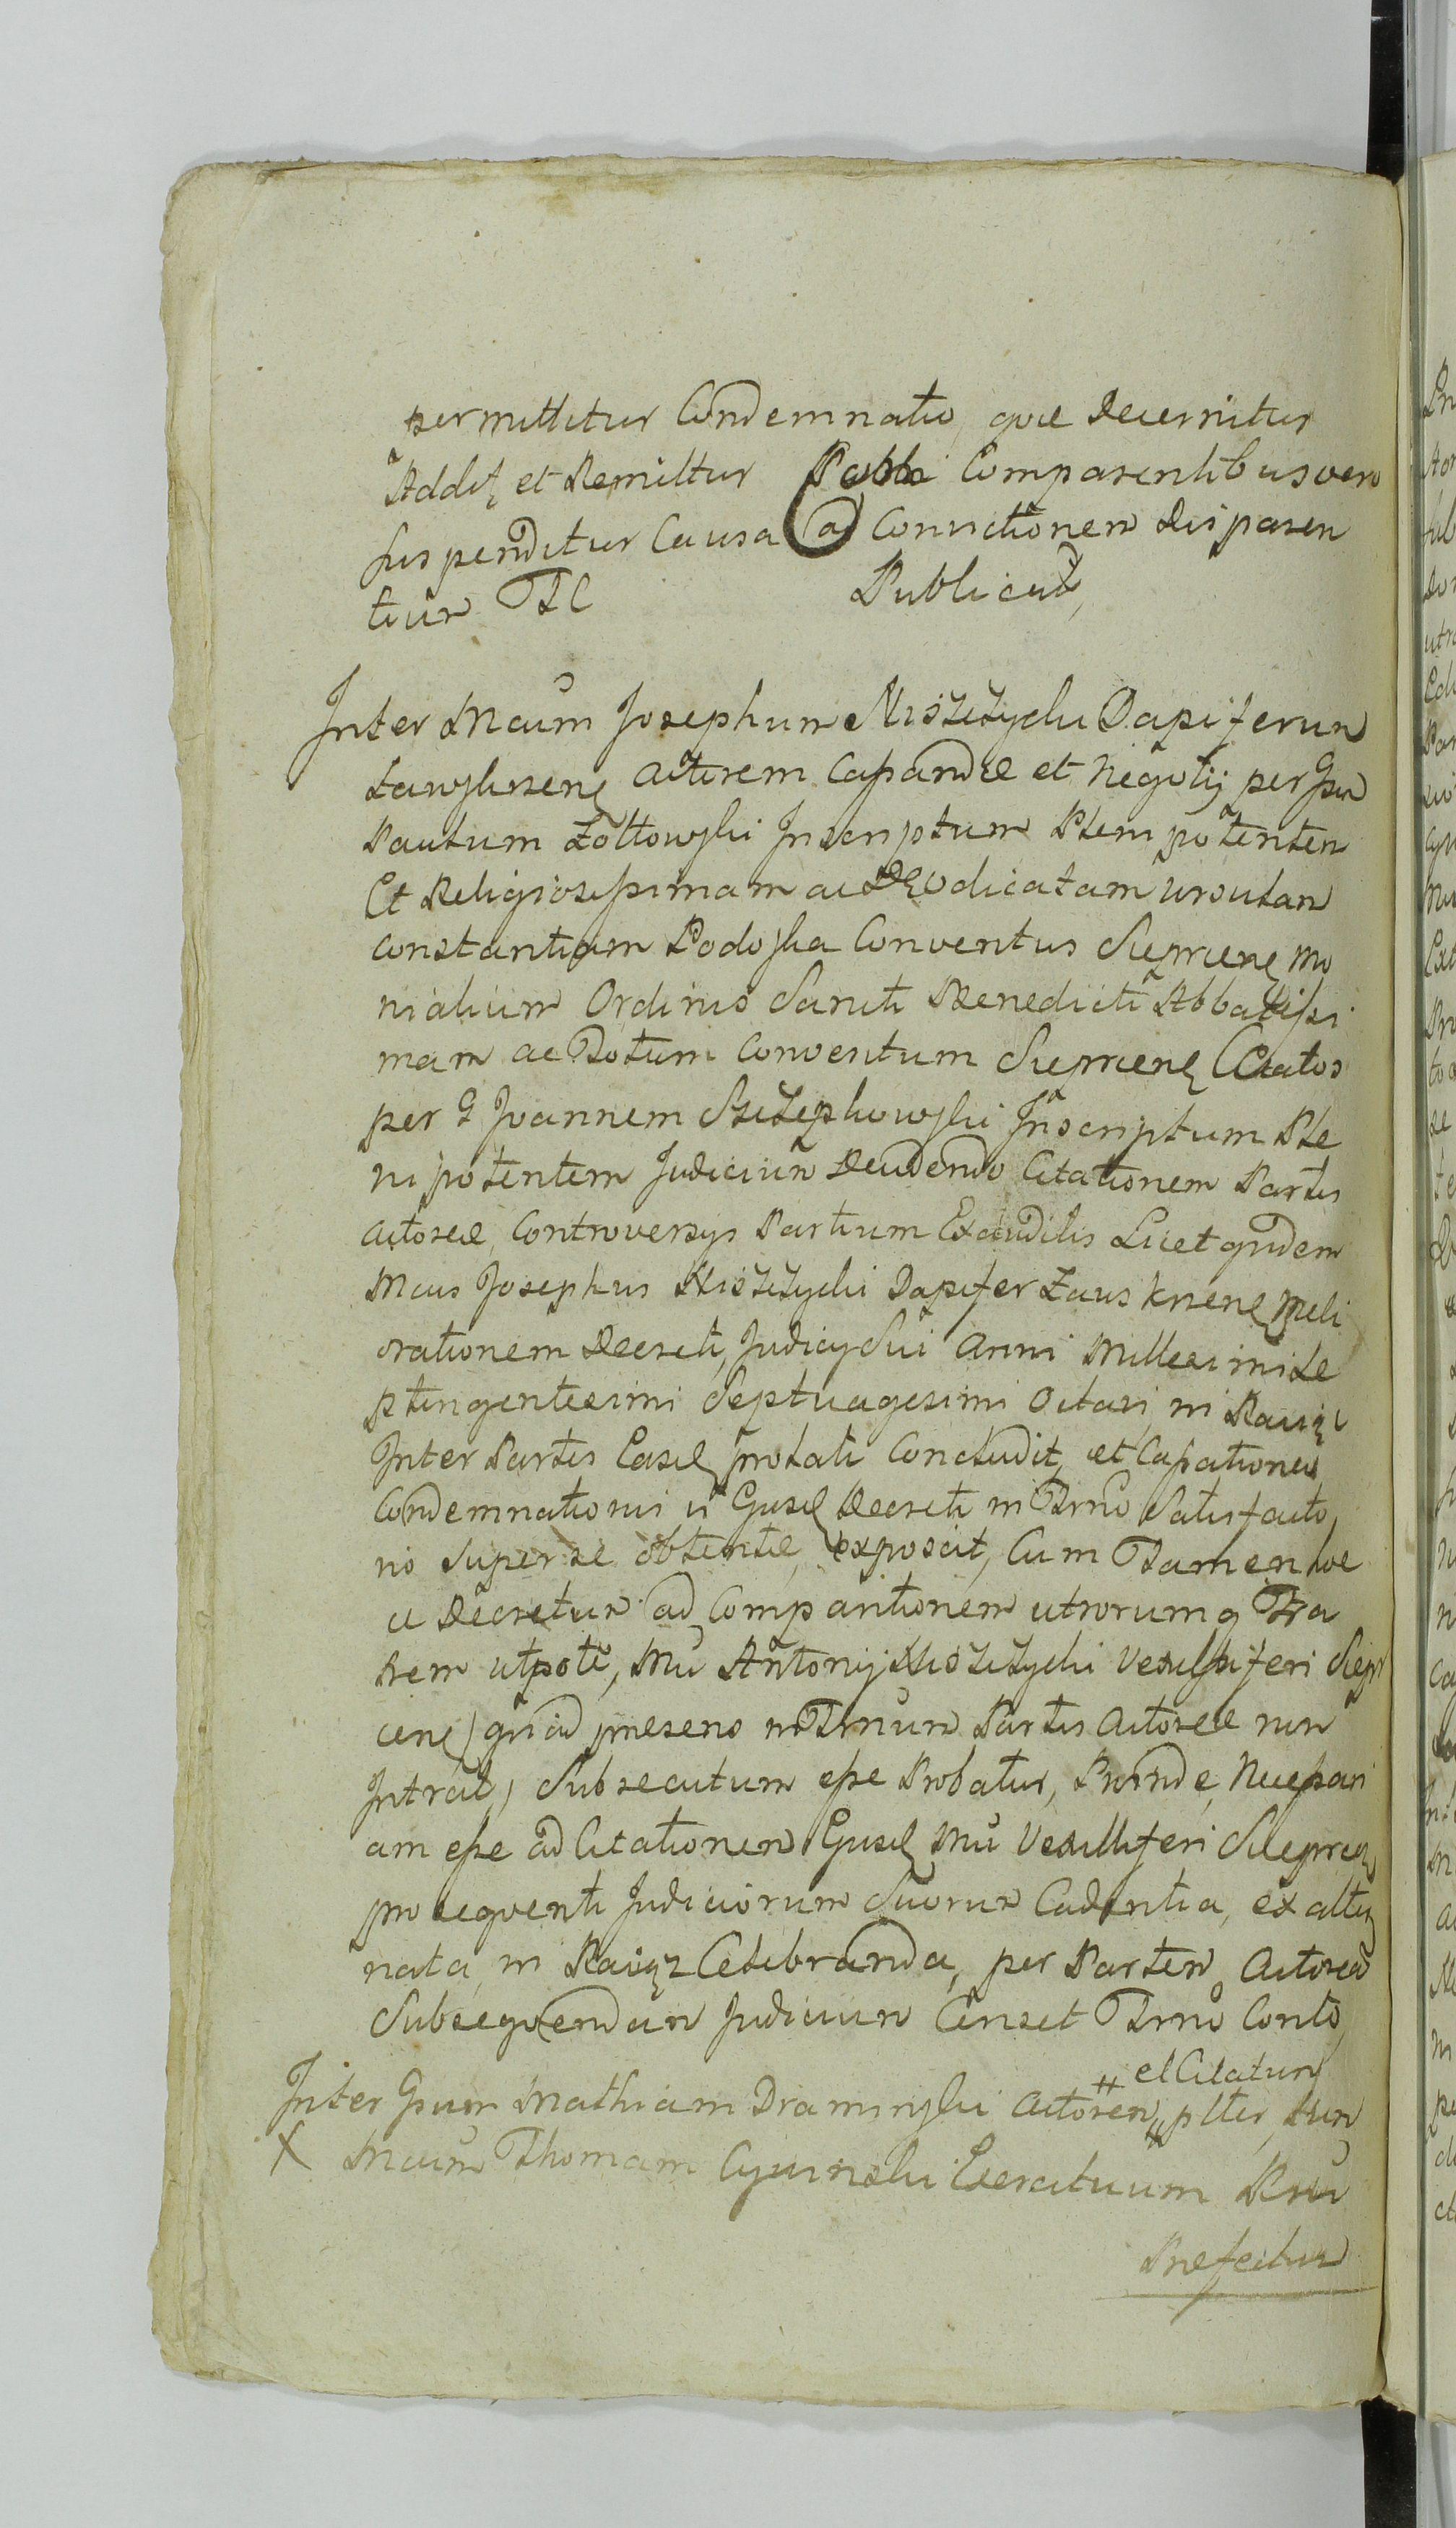 permittitur Condemnatio, quæ Decernitur
Addit et Remittur Comparentibus vero
suspenditur Causa ad Convictionem disparen
tium TC Publicat,
Inter Mcum Josephum Niszczycki Dapiferum
actorem Capandæ et Negotij per Gsum
Paulum Zołtowski Inscriptum Plenipotenten
Et Religiosissimam ac Deo dicatam Ursulan
Constantiam Podoska Conventus Sieprcens Mo
nialium Ordinis Sancti Benedicti Abbatissi
mam ac Totum Conventum Sieprcens Citatos
per G Joannem Inscriptum Ple
nipotentem Judicium Decidendo Citationem Partis
actoreæ, Controversys Partium Exauditis Licet quidem
Mcus Josephus Niszczycki Dapifer Meli
orationem Decreti, Judicy Sui Anni Millesimi Se
ptingentesimi Septuagesimi Octavi, in
Inter Partes prolati Concludit, et Capationem
Condemnationis Decreti in Trno Satisfacto
rio super se obtentæ, exposcit, Cum Tamen hoc
ce Decretum ad Comparitionem utrorumq Fra
trem utpote, Mci Antonij Niszczycki Vexilliferi Siepr
cens) qui ad præsens Trnum Partis Actoreæ non
Intrat,) Subsecutum esse Probatur, Proinde, Necessari
am esse ad Citationem Mci Vexilliferi Sieprcens
pro sequenti Judiciorum Suorum Cadentia, ex alter
nata, in Celebranda, per Partem Actoream
Subsequendam Judicium Censet Trno Conto,
et Citatum
Inter Gsum Mathiam Draminski Actorem,, ptter, tum
X Mcum Thomam Exercituum
Præfectum